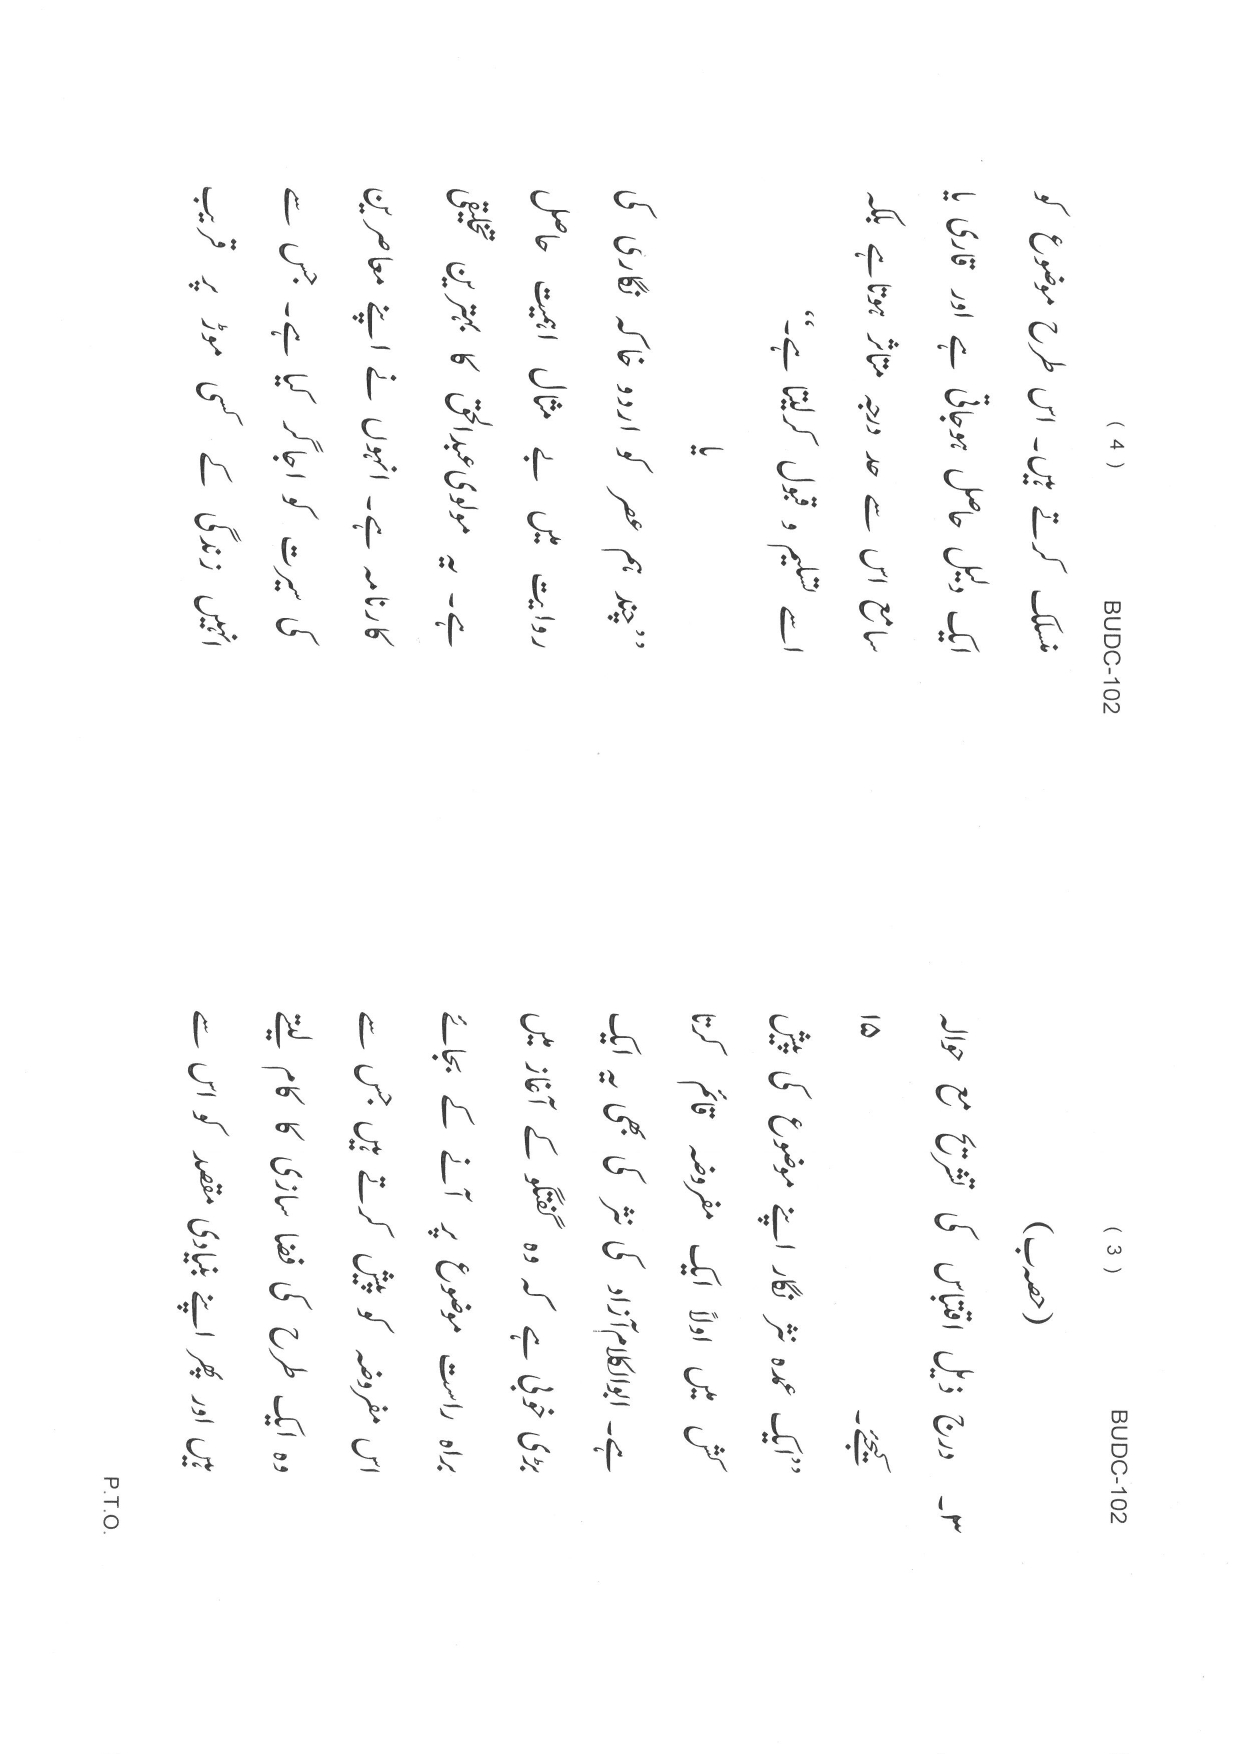 ( 3 ) BUDC-102
(حصہ ب)
۳۔ درج ذیل اقتباس کی تشریح مع حوالہ
کیجئے۔ ۱۵
”ایک عمدہ نثر نگار اپنے موضوع کی پیش
کش میں اولاً ایک مفروضہ قائم کرتا
ہے۔ ابوالکلام آزاد کی نثر کی بھی یہ ایک
بڑی خوبی ہے کہ وہ گفتگو کے آغاز میں
براہ راست موضوع پر آنے کے بجائے
اس مفروضہ کو پیش کرتے ہیں جس سے
وہ ایک طرح کی فضا سازی کا کام لیتے
ہیں اور پھر اپنے بنیادی مقصد کو اس سے
P.T.O.
( 4 ) BUDC-102
منسلک کرتے ہیں۔ اس طرح موضوع کو
ایک دلیل حاصل ہوجاتی ہے اور قاری یا
سامع اس سے حد درجہ متاثر ہوتا ہے بلکہ
اسے تسلیم و قبول کرلیتا ہے۔“
یا
”چند ہم عصر کو اردو خاکہ نگاری کی
روایت میں بے مثال اہمیت حاصل
ہے۔ یہ مولوی عبدالحق کا بہترین تخلیقی
کارنامہ ہے۔ انہوں نے اپنے معاصرین
کی سیرت کو اجاگر کیا ہے۔ جس سے
انہیں زندگی کے کسی موڑ پر قریب